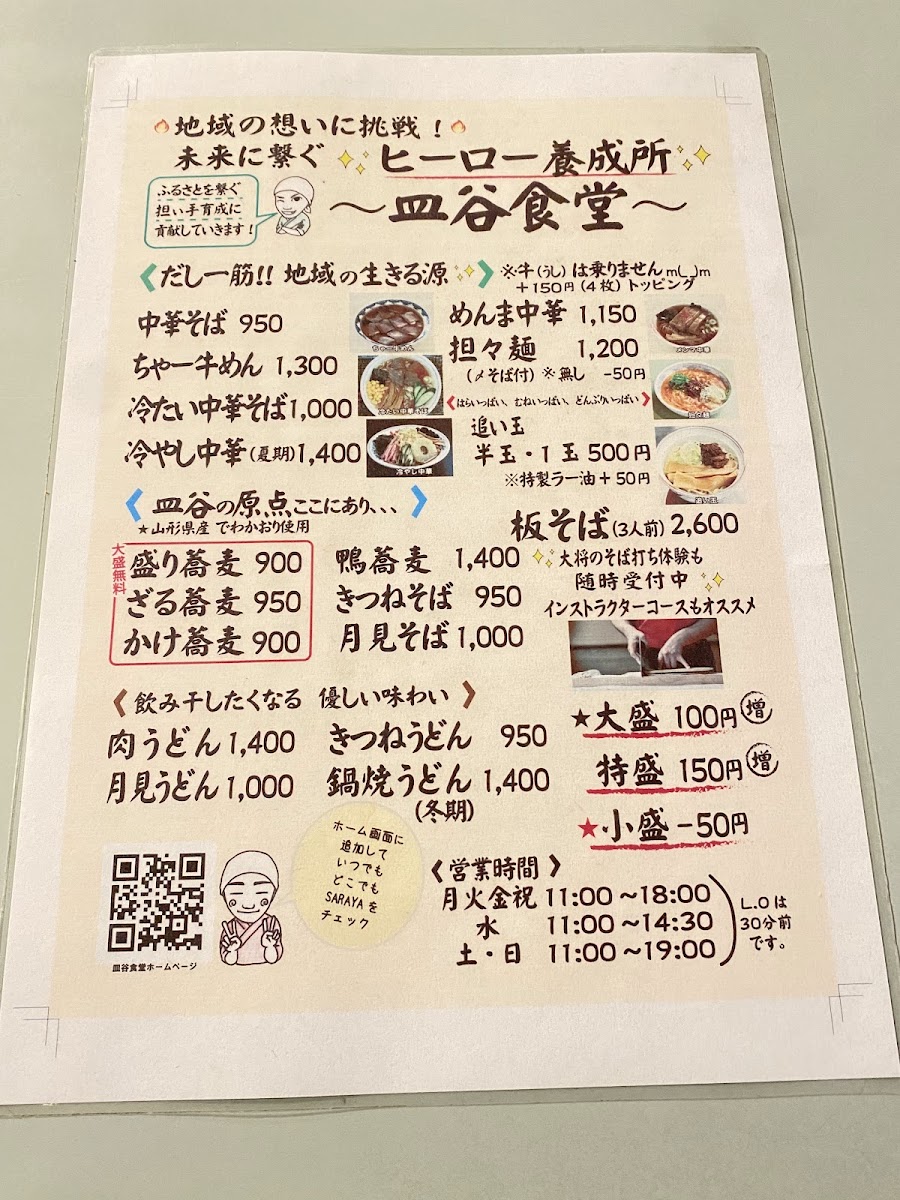 地域の想いに挑戦！
未来に繋ぐ ヒーロー養成所
～皿谷食堂～
ふるさとを繋ぐ
担い手育成に
貢献していきます！
だし一筋!! 地域の生きる源
※牛(うし)は乗りませんm(_)m
+150円(4枚)トッピング
中華そば 950
ちゃー牛めん 1,300
冷たい中華そば 1,000
冷やし中華(夏期) 1,400
ちゃー牛めん
冷たい中華そば
冷やし中華
めんま中華 1,150
担々麺 1,200
(〆そば付) ※無し -50円
はらいっぱい、むねいっぱい、どんぶりいっぱい
追い玉
半玉・1玉 500円
※特製ラー油+50円
メンマ中華
担々麺
追い玉
皿谷の原点ここにあり、、、
★山形県産 でわかおり使用
大盛無料
盛り蕎麦 900
ざる蕎麦 950
かけ蕎麦 900
鴨蕎麦 1,400
きつねそば 950
月見そば 1,000
板そば(3人前) 2,600
大将のそば打ち体験も
随時受付中
インストラクターコースもオススメ
飲み干したくなる 優しい味わい
肉うどん 1,400
月見うどん 1,000
きつねうどん 950
鍋焼うどん 1,400
(冬期)
★大盛 100円増
特盛 150円増
★小盛 -50円
ホーム画面に
追加して
いつでも
どこでも
SARAYAを
チェック
皿谷食堂ホームページ
《営業時間》
月火金祝 11:00～18:00
水 11:00～14:30
土・日 11:00～19:00
L.Oは
30分前
です。